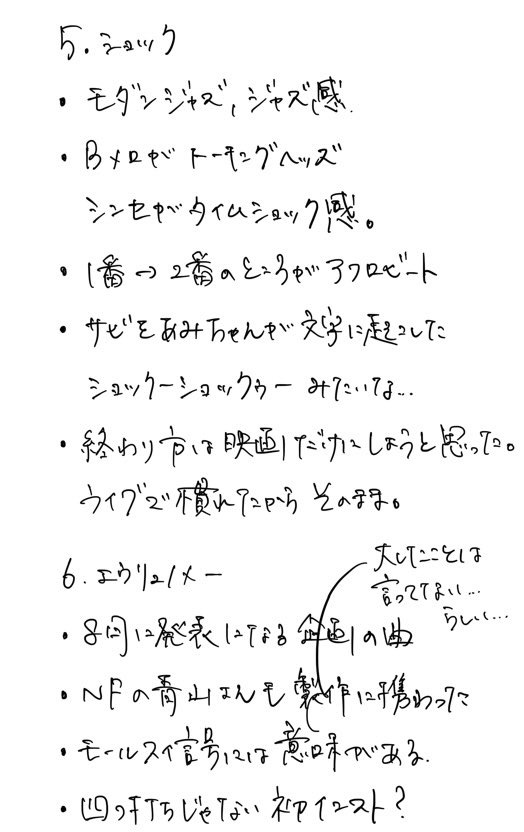 5. ショック
・モダンジャズ、ジャズ感
・Bメロがトーキングヘッズ
シンセがタイムショック感。
・1番→2番のところがアフロビート
・サビをあみちゃんが文字に起こした
ショックーショックゥーみたいな…
・終わり方は映画だけにしようと思った。
ライブで慣れたからそのまま。
6. エウリュノメー
大したことは
言ってない…
らしい…
・8月に発表になる企画の曲
・NFの青山さんも製作に携わった
・モールス信号には意味がある。
・四つ打ちじゃない初インスト?